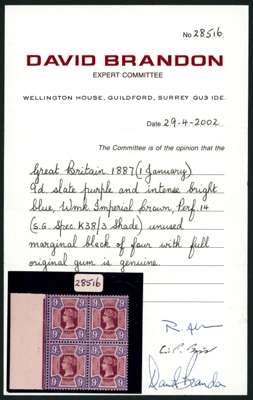 No 28516
DAVID BRANDON
EXPERT COMMITTEE
WELLINGTON HOUSE, GUILDFORD, SURREY GU3 1DE.
Date 29-4-2002
The Committee is of the opinion that the
Great Britain 1887 (1 January)
9d slate purple and intense bright
blue, Wmk Imperial Crown, Perf. 14
(S.G. Spec K38/3 Shade) unused
marginal block of four with full
original gum is genuine.
28516
9d 9d 9d 9d
9d 9d 9d 9d
David Brandon